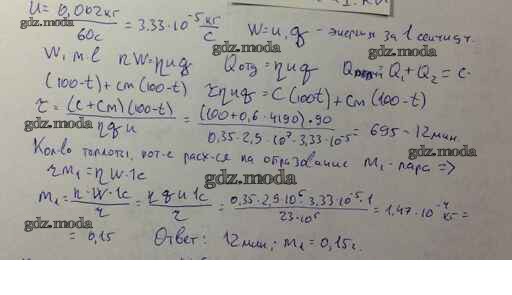 u = 0,002кг / 60с = 3.33·10⁻⁵ кг/с W=u,q - энергия за 1 секунду.
gdz.moda gdz.moda gdz.moda
W, m.e nW=ηuq Qотд = ηuq Q₁+Q₂ = c·
(100-t)+cm(100-t) τηuq = C(100t)+cm(100-t)
τ = (C+cm)(100-t) / ηqu = (100+0,6·4190)·90 / 0,35·2,9·10⁷·3,33·10⁻⁵ = 695 - 12мин.
gdz.moda gdz.moda
Кол-во теплоты, кот-е расх-ся на образование m₁-пара =>
gdz.moda gdz.moda
rm₁=ηW·1c
gdz.moda
m₁ = η·W·1c / r = ηqu·1c / r = 0,35·2,9·10⁶·3,33·10⁻⁵·1 / 23·10⁵ = 1,47·10⁻⁴ кг =
gdz.moda gdz.moda
= 0,15 Ответ: 12мин; m₁=0,15г.
gdz.moda gdz.moda